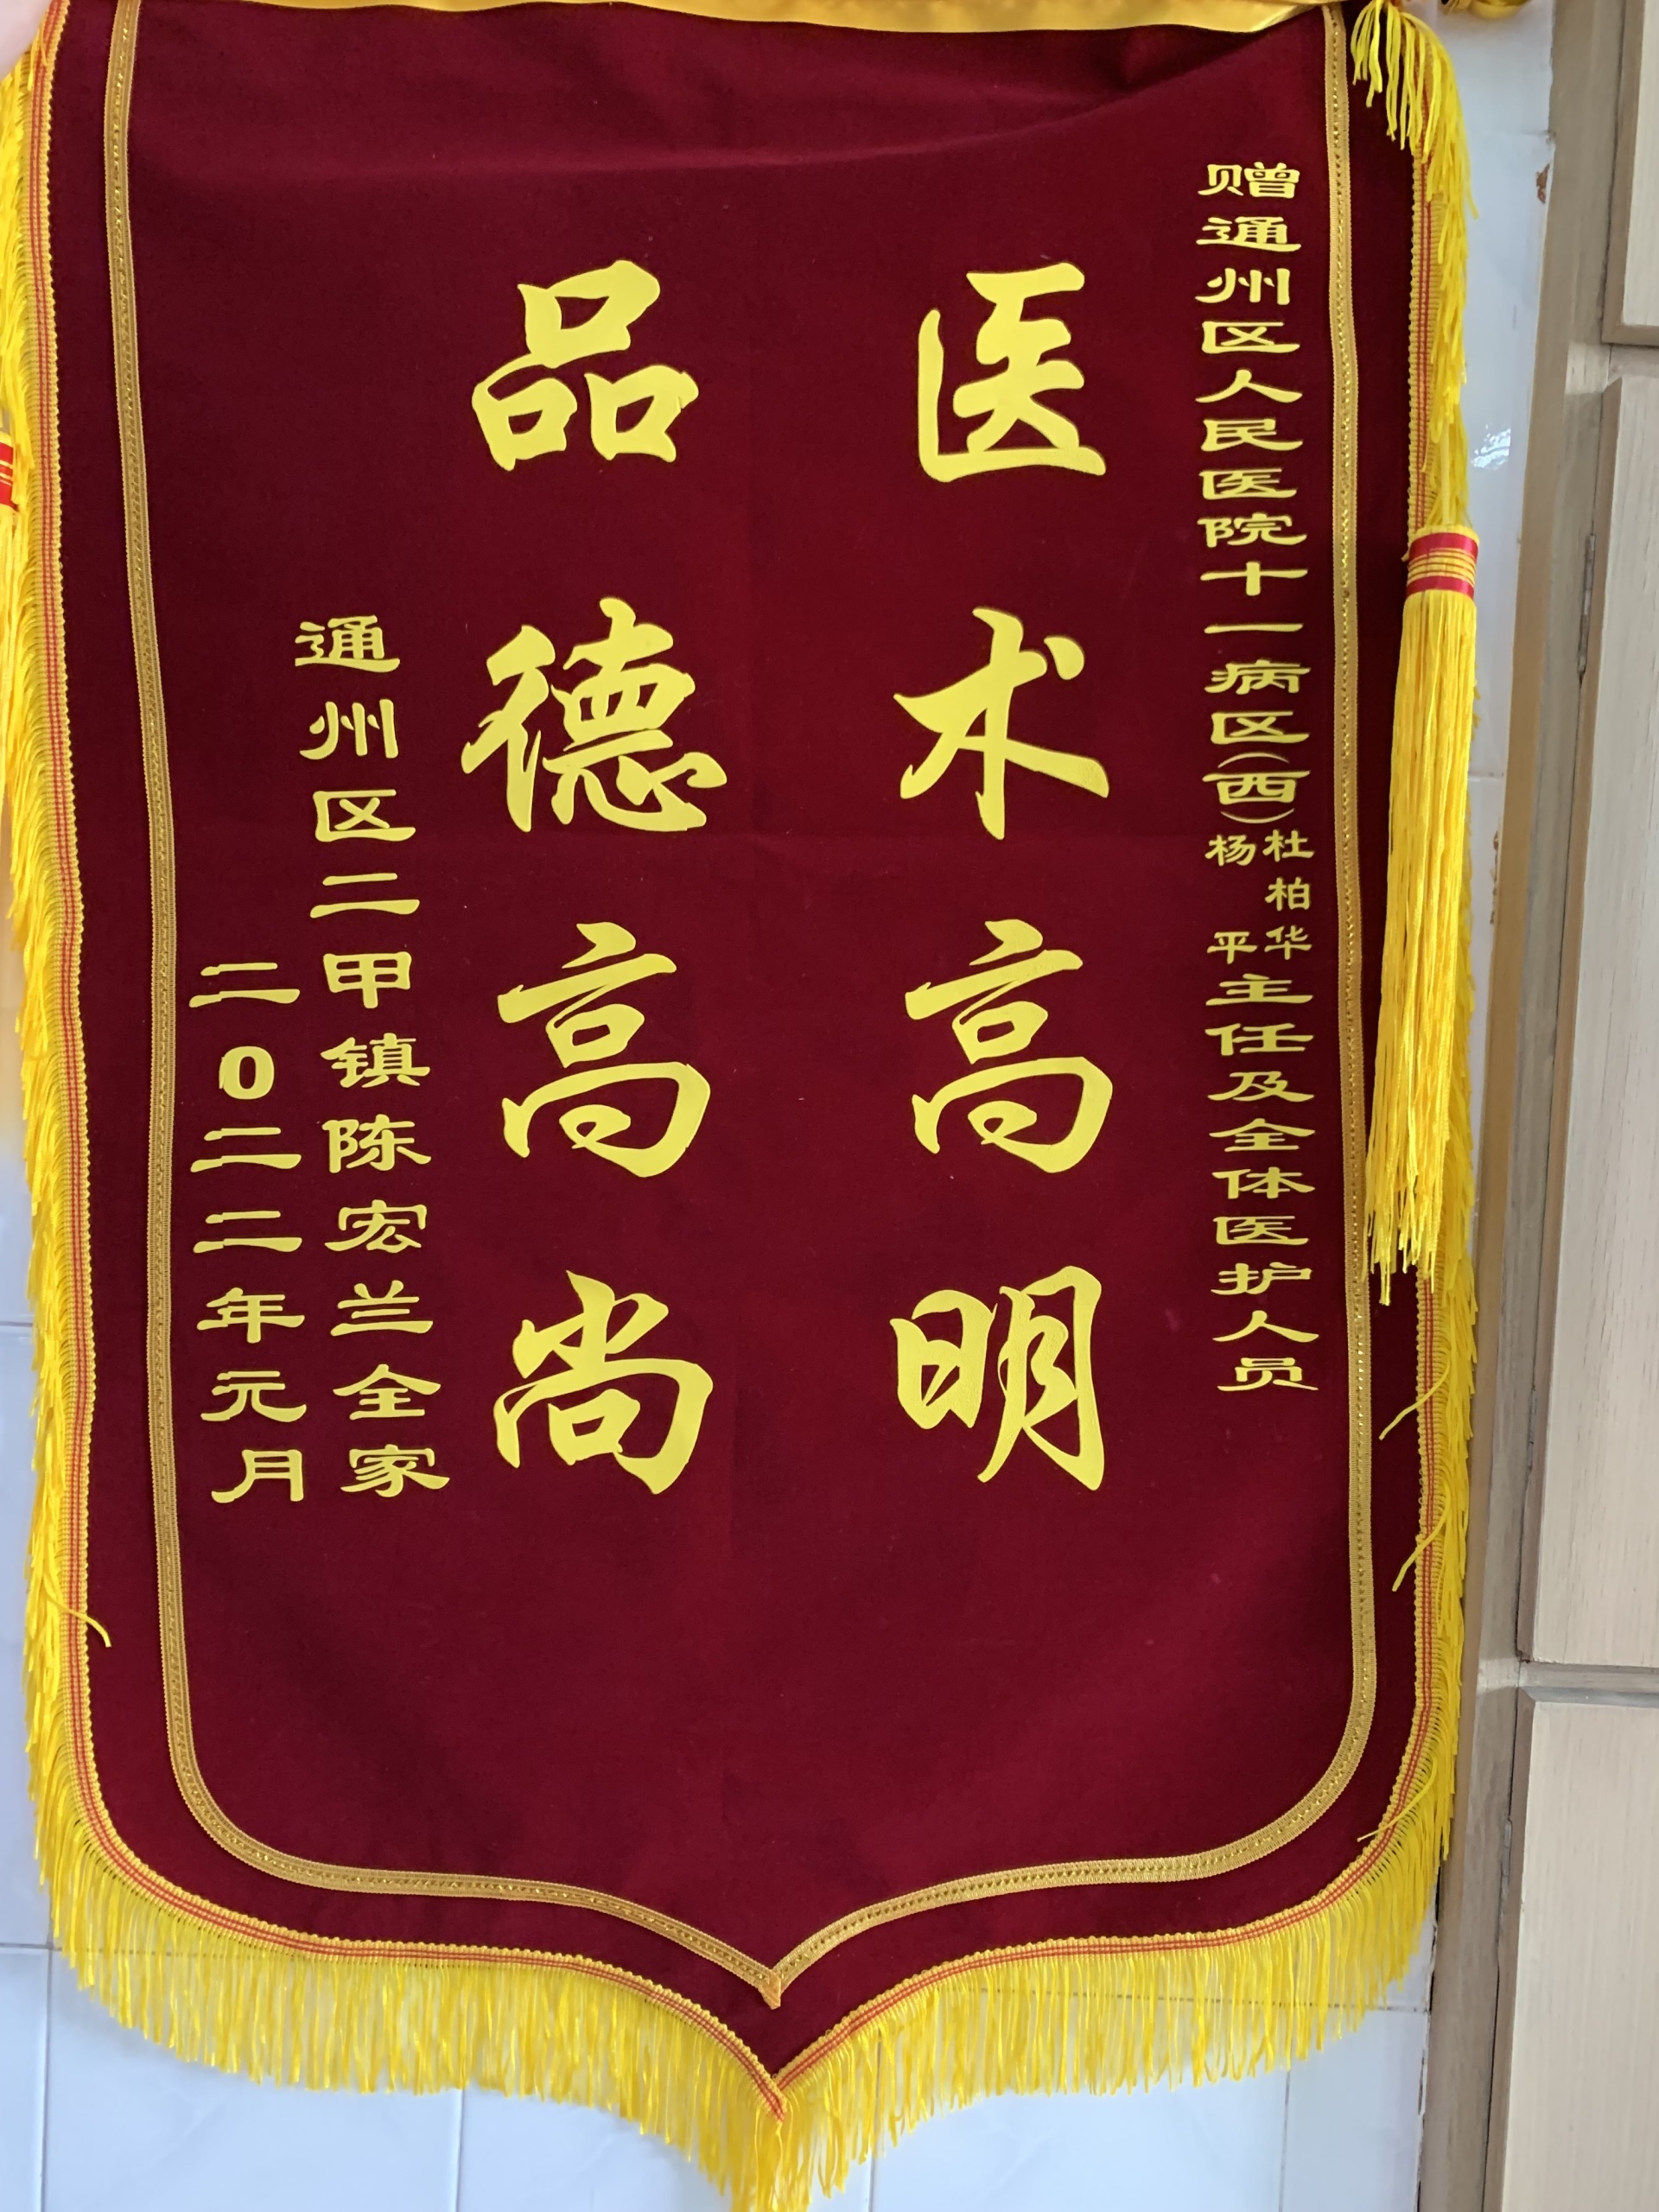 赠通州区人民医院十一病区(西)杜柏华杨平主任及全体医护人员
医术高明
品德高尚
通州区二甲镇陈宏兰全家
二0二二年元月